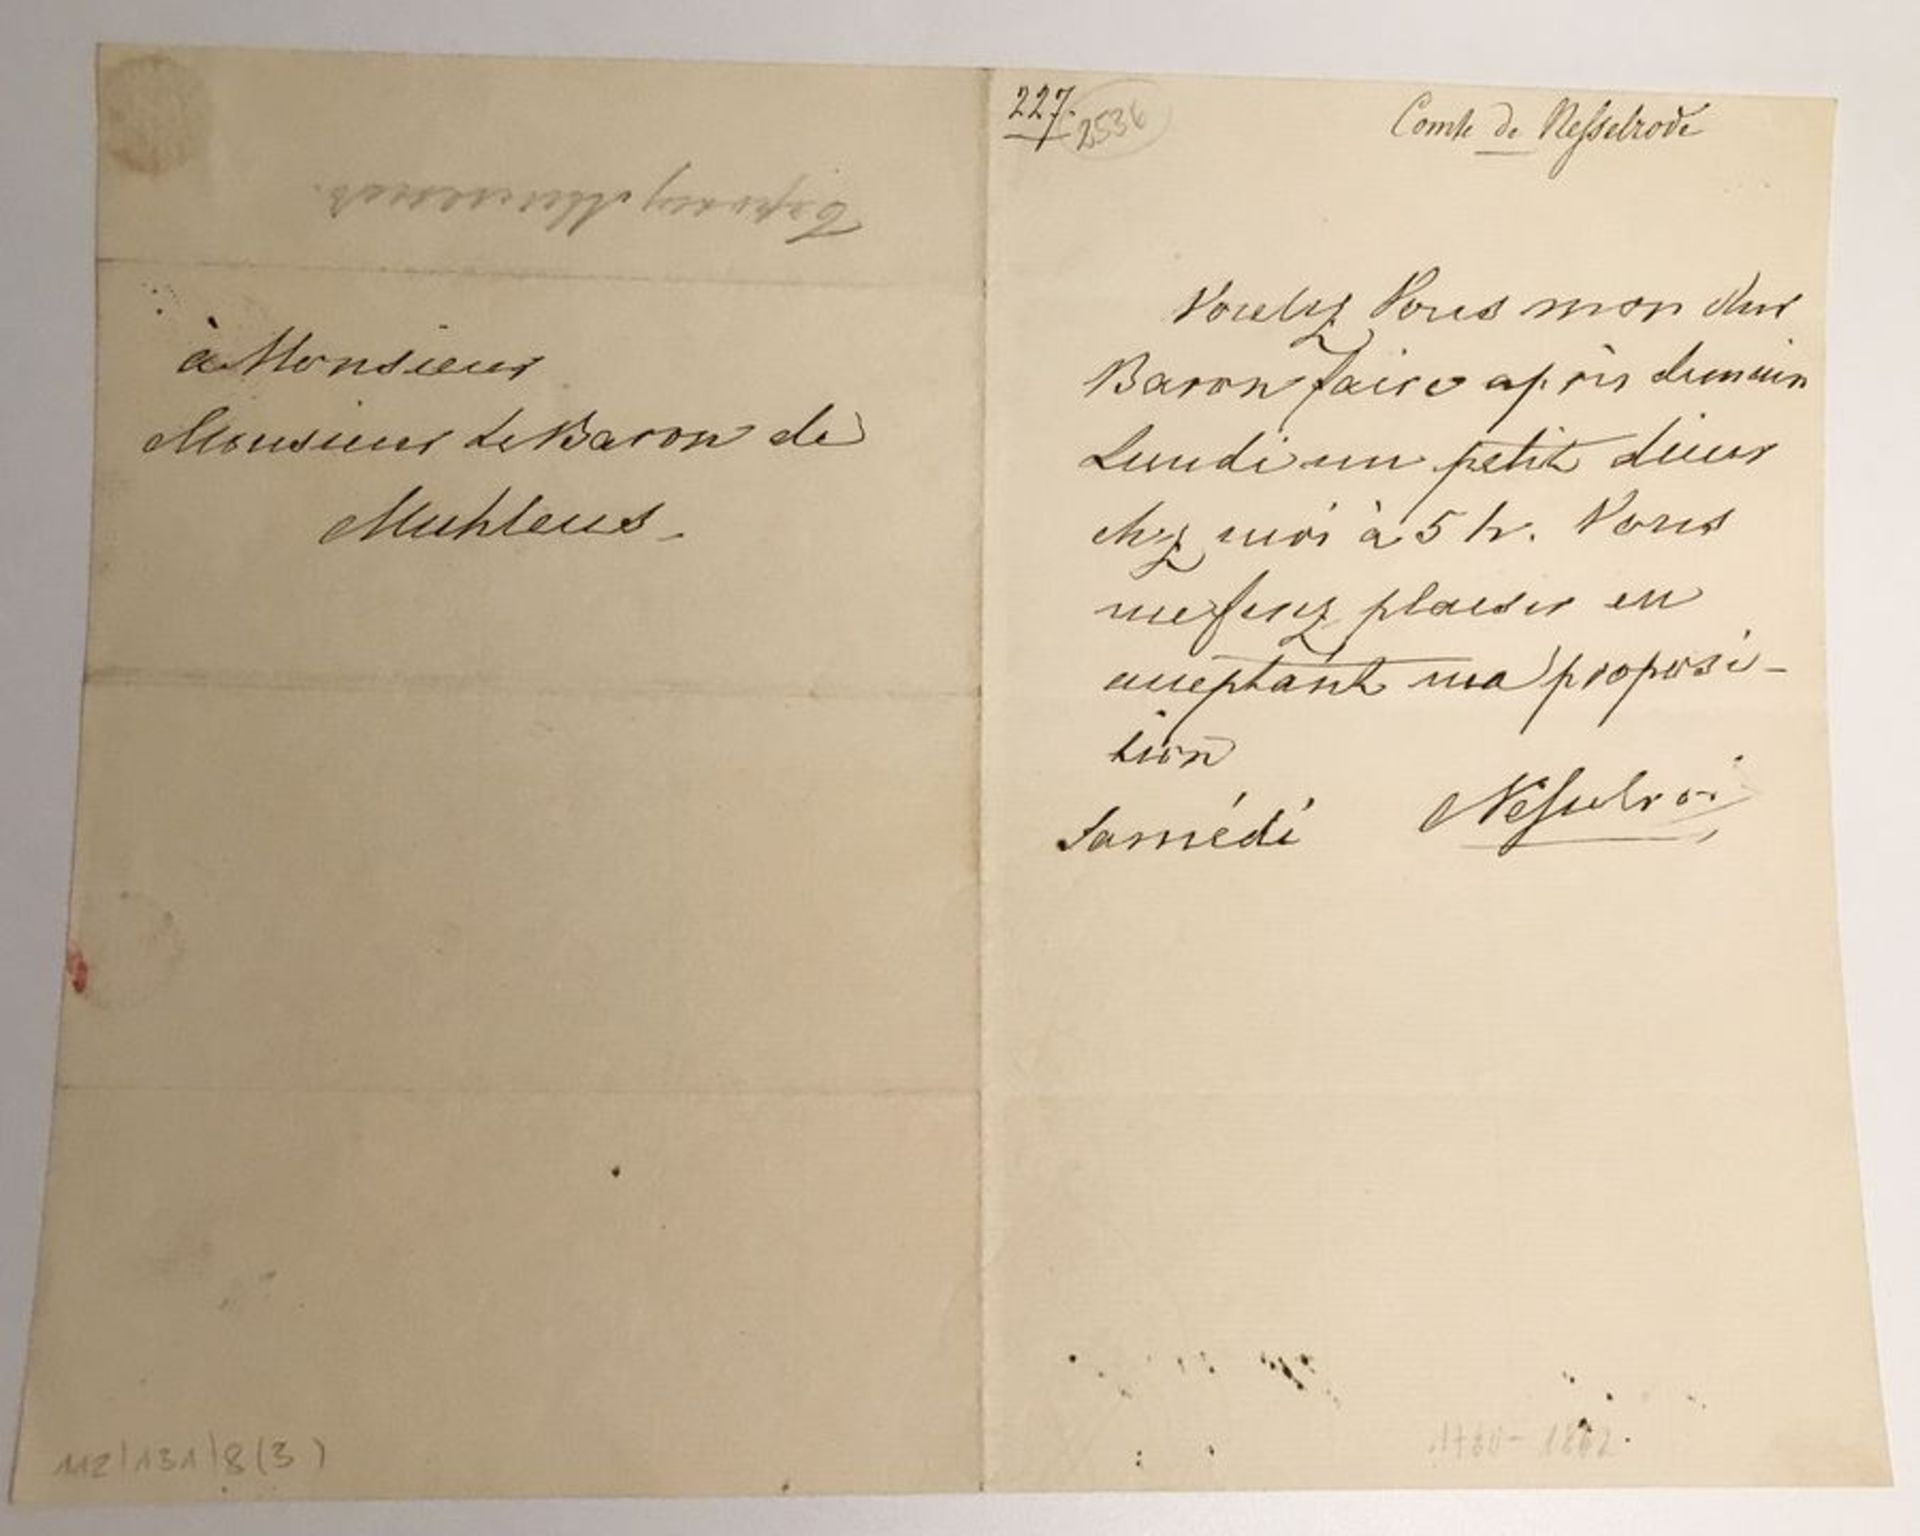 à Monsieur
Monsieur Le Baron de
Muhlens.
112/131/8(3)
227.
2536
Comte de Nesselrode
Voulez Vous mon cher
Baron faire après demain
Lundi un petit diner
chez moi à 5 h. Vous
me ferez plaisir en
acceptant ma proposi-
tion
Samédi Nesselrode
1780-1862.